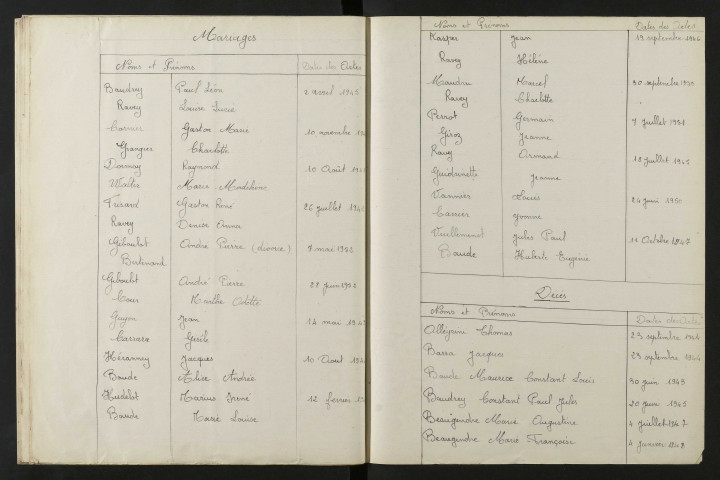 Mariages
Noms et Prénoms Dates des Actes
Baudrey Paul Léon 2 avril 1945
Ravey Louise Lucie
Garnier Gaston Marie 10 novembre
Grangier Charlotte
Dormoy Raymond 10 Août
Walter Marie-Madeleine
Frisard Gaston René 26 juillet
Ravey Denise Anna
Geboulet André Pierre (divorce) 7 mai 1952
Bertinand
Geboulet André Pierre 28 juin 1952
Cour Marthe Odette
Guyon Jean 14 mai
Carrara Gisèle
Hérannay Jacques 10 Aout
Baude Alice Andrée
Hudelot Marius Irené 12 fevrier
Baude Marie Louise
Noms et Prénoms Dates des Actes
Kaspar Jean 19 septembre 1946
Ravey Hélène
Maudru Marcel 30 septembre 1950
Ravey Charlotte
Perrot Germain 7 juillet 1951
Giroz Jeanne
Ravey Armand 18 juillet 1945
Guidrinetti Jeanne
Vannier Louis 24 juin 1950
Carrier Yvonne
Vuillemenot Jules Paul 11 Octobre 1947
Baude Huberte Eugénie
Décès
Noms et Prénoms Dates des Actes
Allegrini Thomas 23 septembre 1946
Barra Jacques 29 septembre 1944
Baude Maurice Constant Louis 30 juin 1949
Baudrey Constant Paul Jules 20 juin 1945
Beaugendre Marie Augustine 4 juillet 1947
Beaugendre Marie Françoise 4 janvier 1949